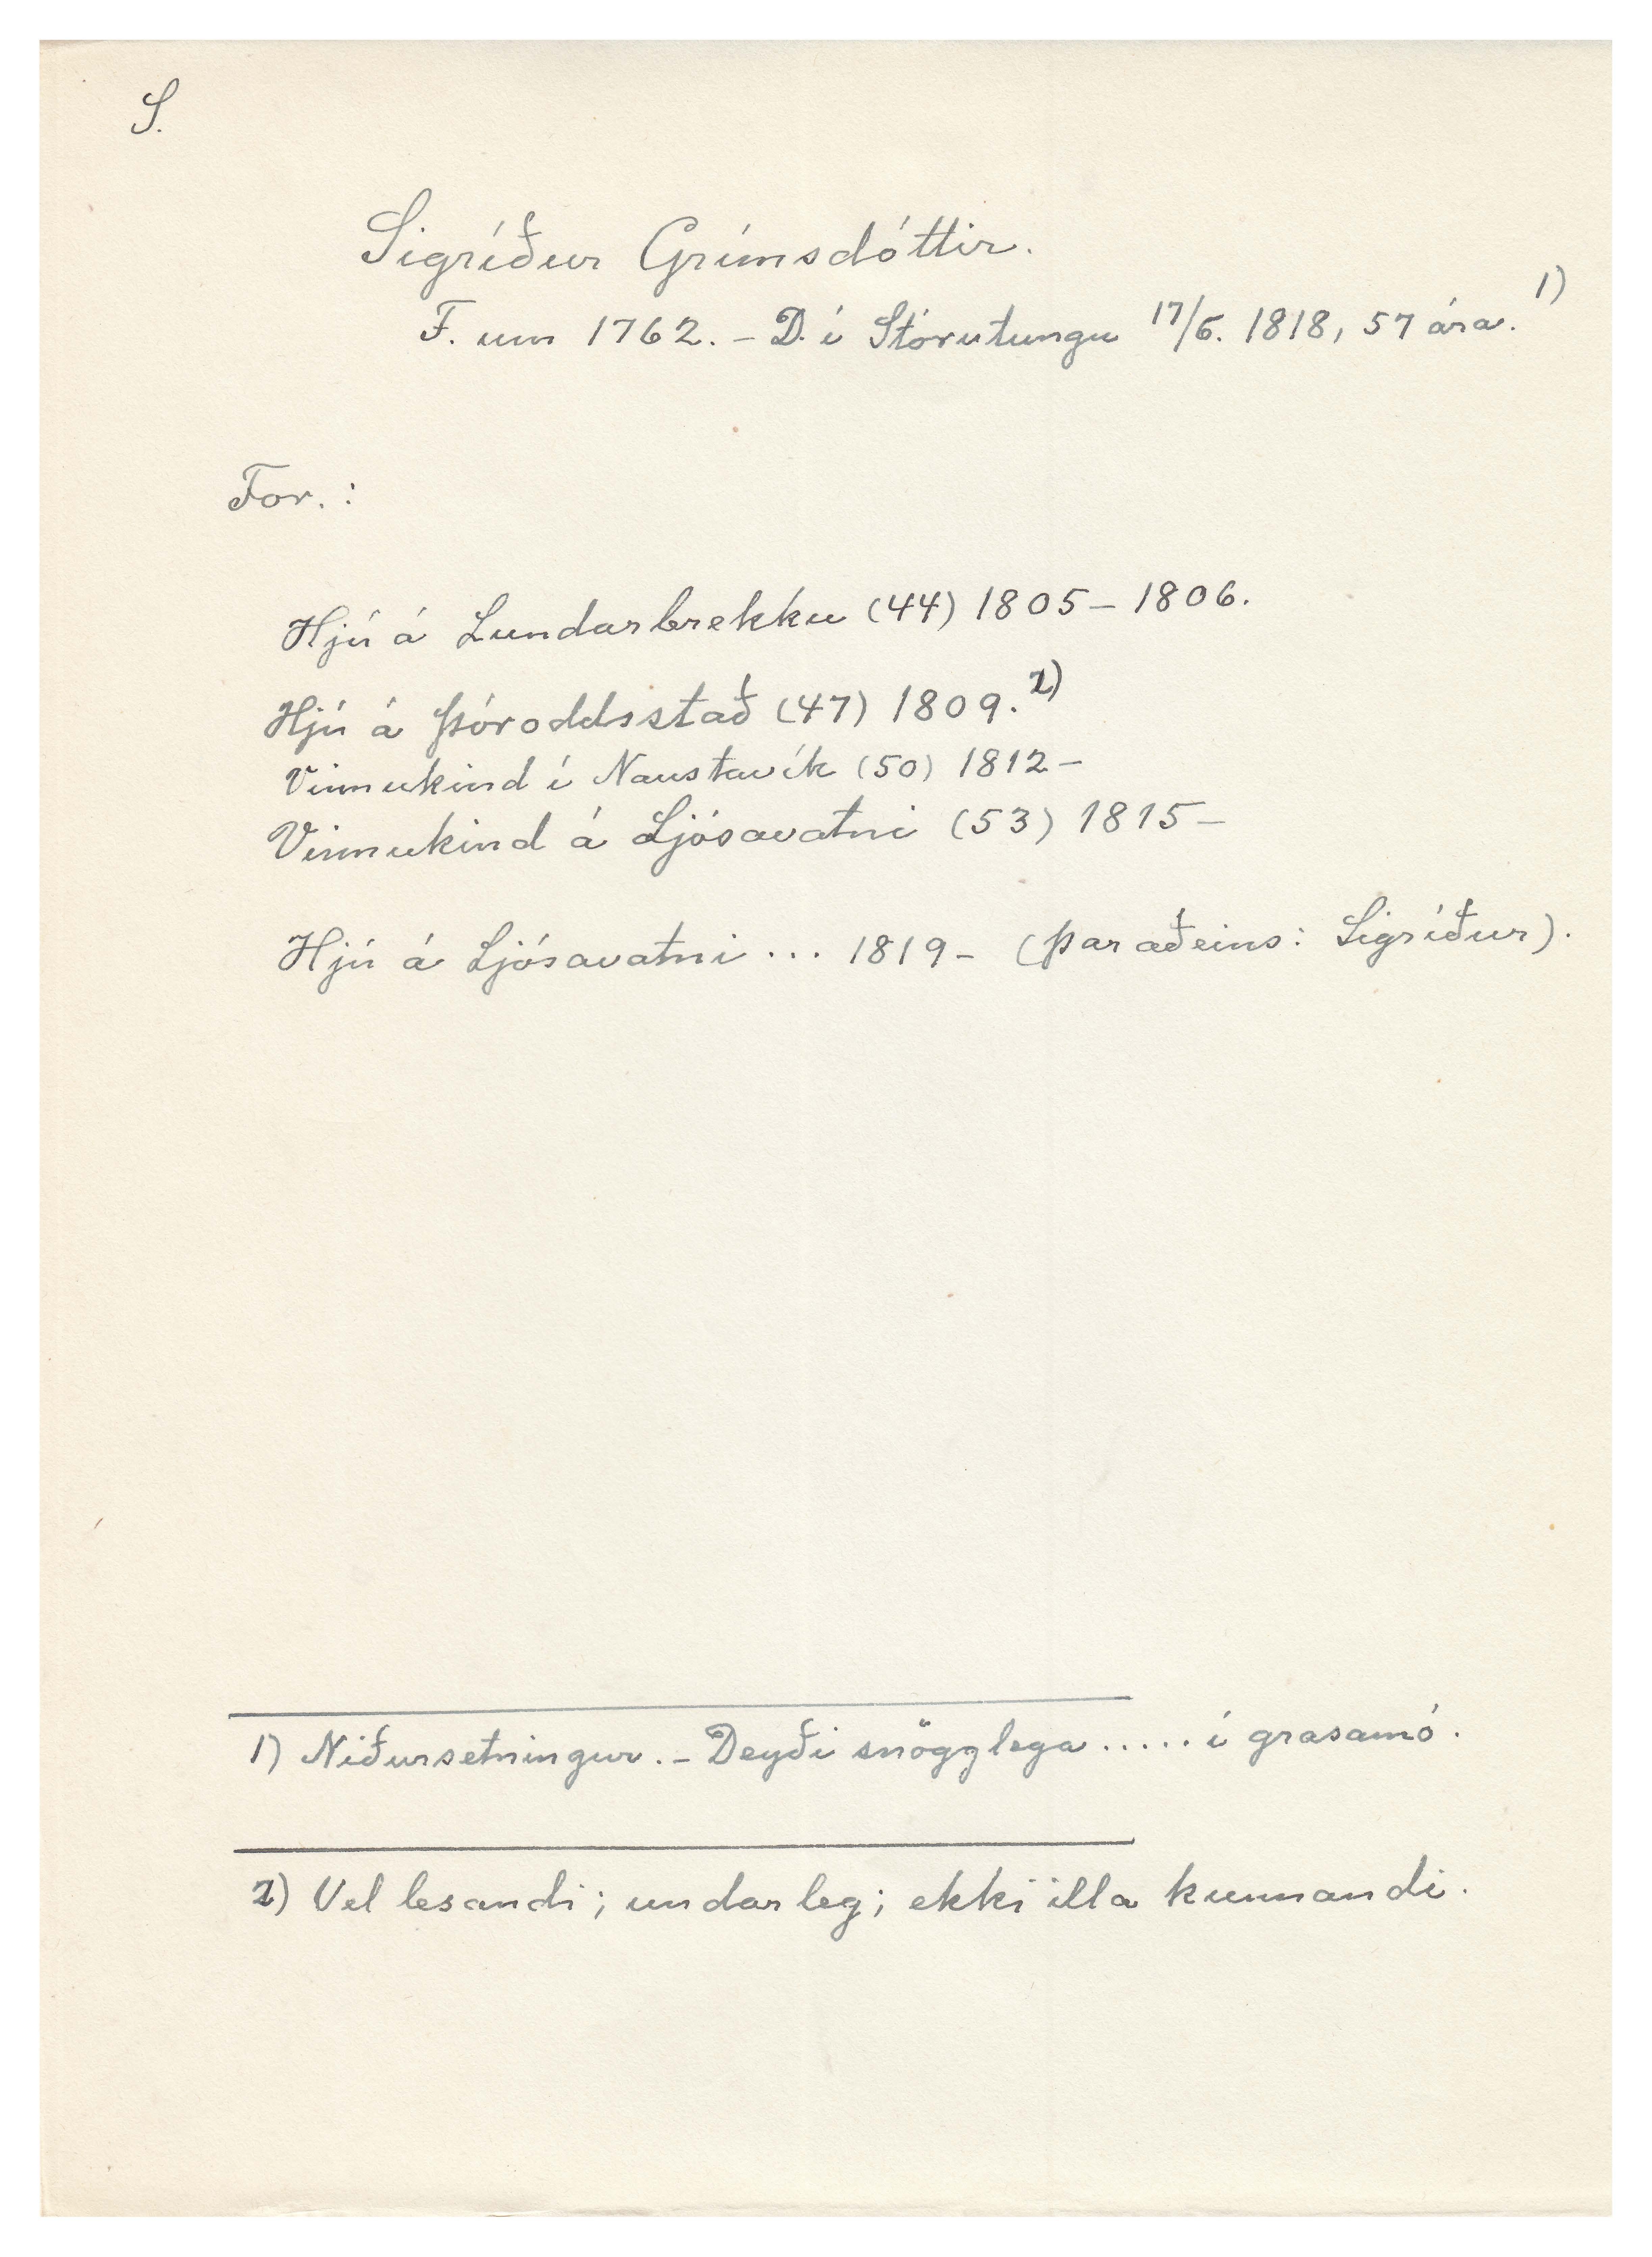 S.
Sigríður Grímsdóttir.
F. um 1762. – D. í Stórutungu 17/6. 1818, 57 ára. 1)
For. :
Hjú á Lundarbrekku (44) 1805 – 1806.
Hjú á Þóroddsstað (47) 1809. 2)
Vinnukind í Naustavík (50) 1812 –
Vinnukind á Ljósavatni (53) 1815 –
Hjú á Ljósavatni ... 1819 – (þar aðeins: Sigríður).
1) Niðursetningur. – Deyði snögglega ..... í grasamó.
2) Vel lesandi; undarleg; ekki illa kunnandi.